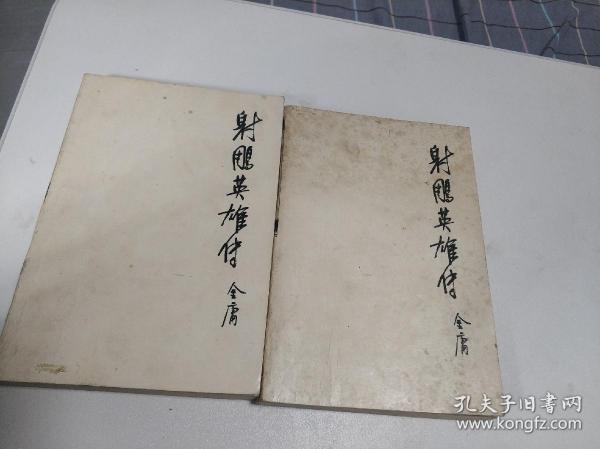 射鵰英雄传
金庸
射鵰英雄传
金庸
孔夫子旧书网
www.kongfz.com